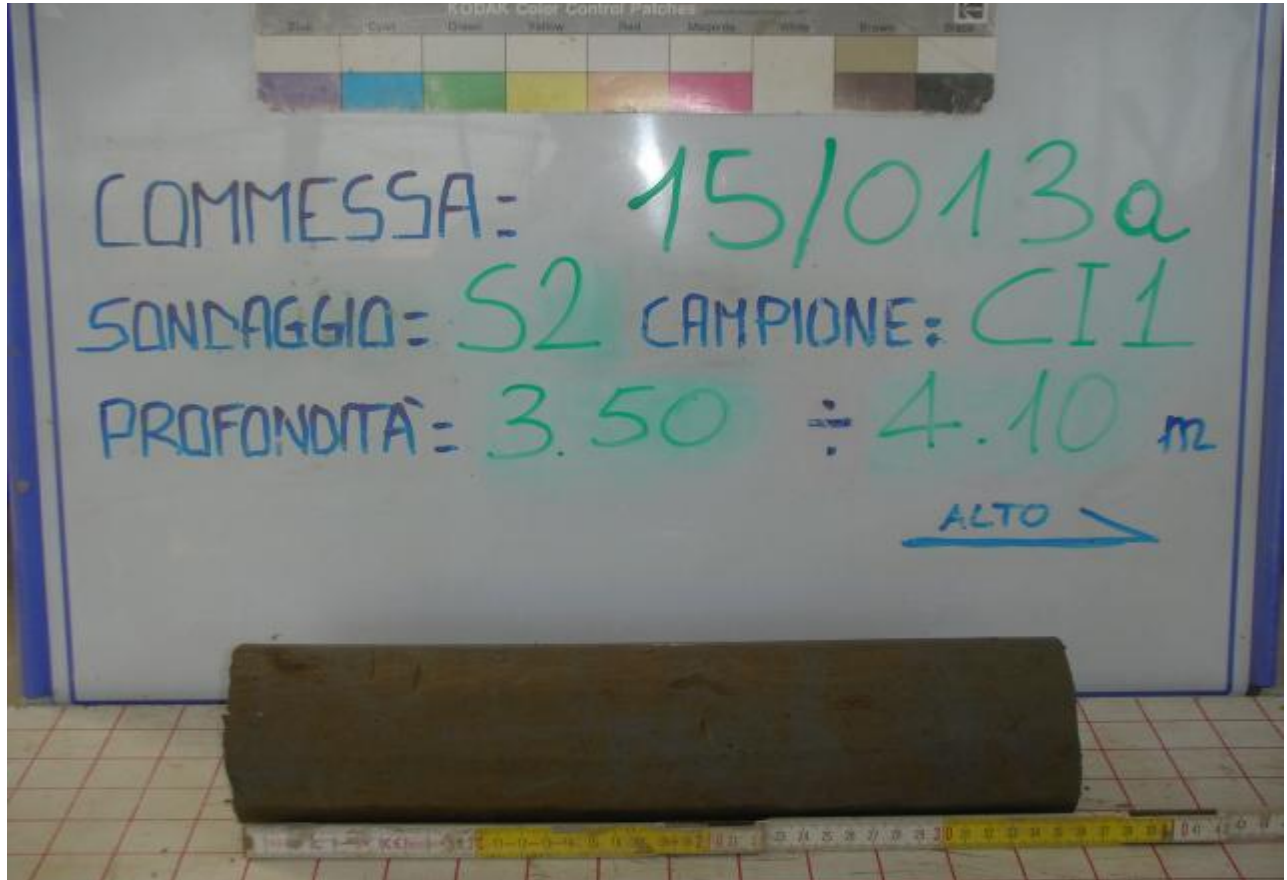 KODAK Color Control Patches
Cyan Green Yellow Red Magenta White Brown Black
COMMESSA: 15/013a
SONDAGGIO: S2 CAMPIONE: CI1
PROFONDITÀ: 3.50 ÷ 4.10 m
ALTO